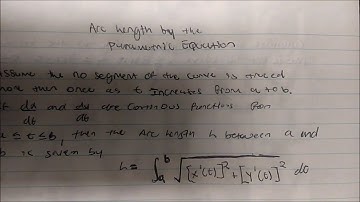 Arc Length by the
Parametric Equation
Assume the no segment of the curve is traced
more then once as t Increases from a to b.
If dx/dt and dy/dt are Continous functions for
a ≤ t ≤ b, then the Arc length h between a and
b is given by
h = ∫_a^b √([x'(t)]² + [y'(t)]²) dt